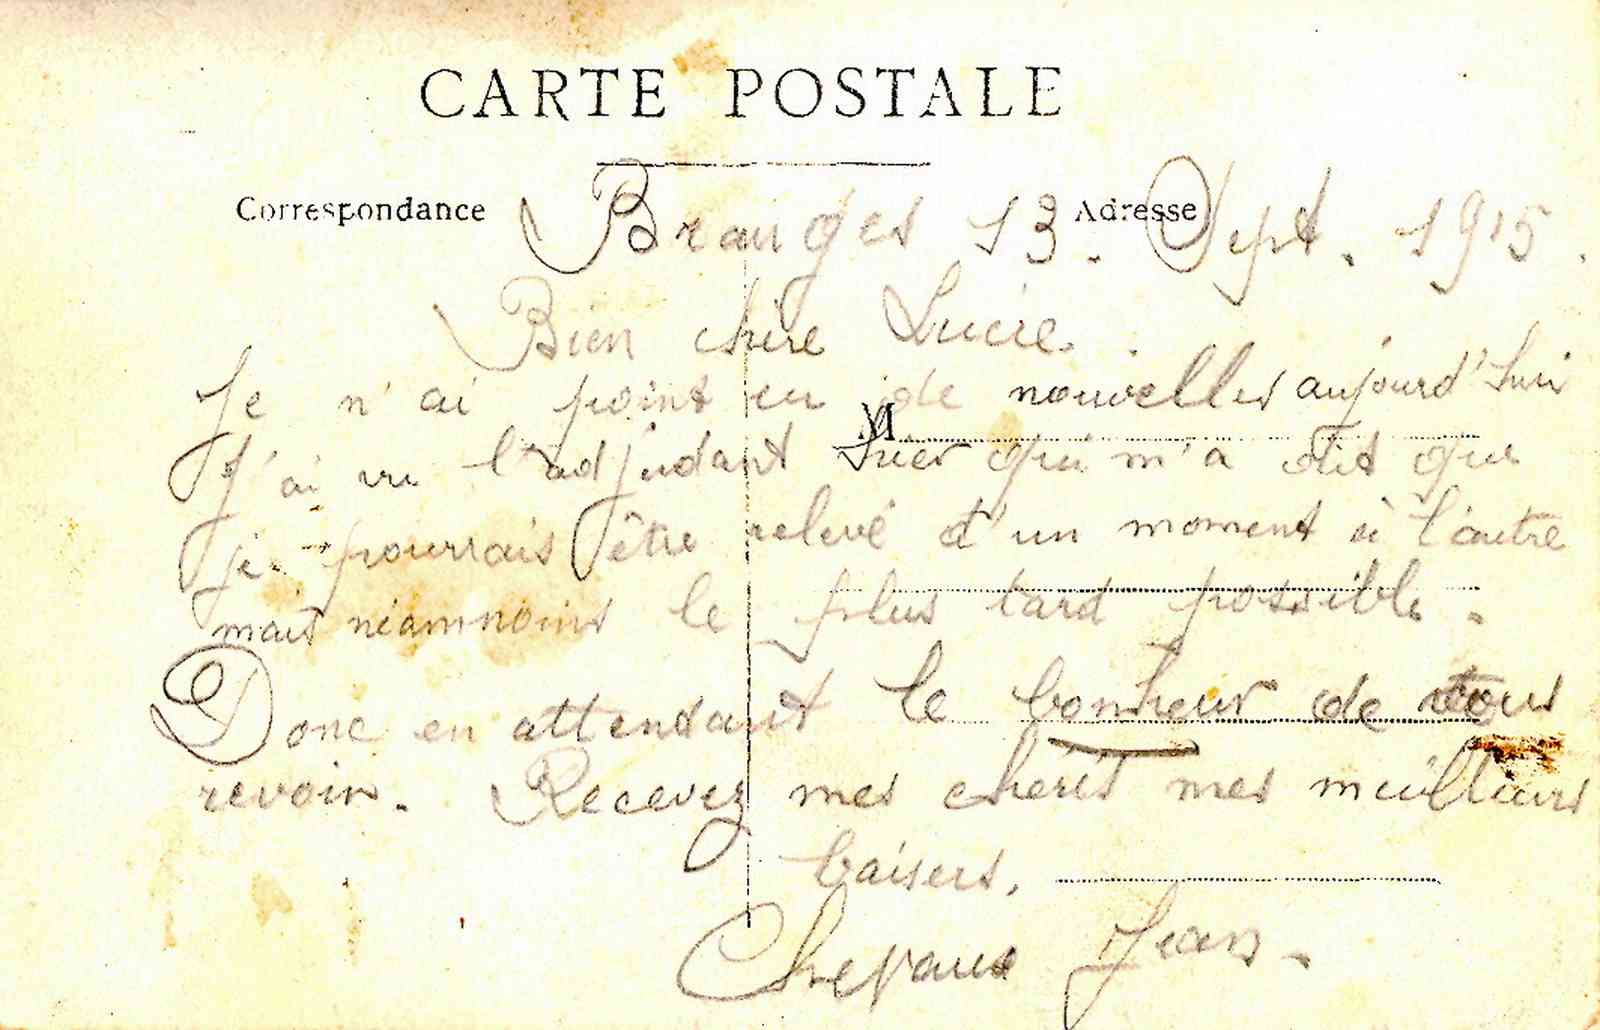 CARTE POSTALE
Correspondance
Adresse
Branges 13. Sept. 1915.
Bien chère Lucie.
Je n'ai point eu de nouvelles aujourd'hui
M
J'ai vu l'adjudant hier qui m'a dit que
je pourrais être relevé d'un moment à l'autre
mais néamnoins le plus tard possible.
Donc en attendant le bonheur de vous
revoir. Recevez mes chéris mes meilleurs
baisers.
Chevaux Jean.